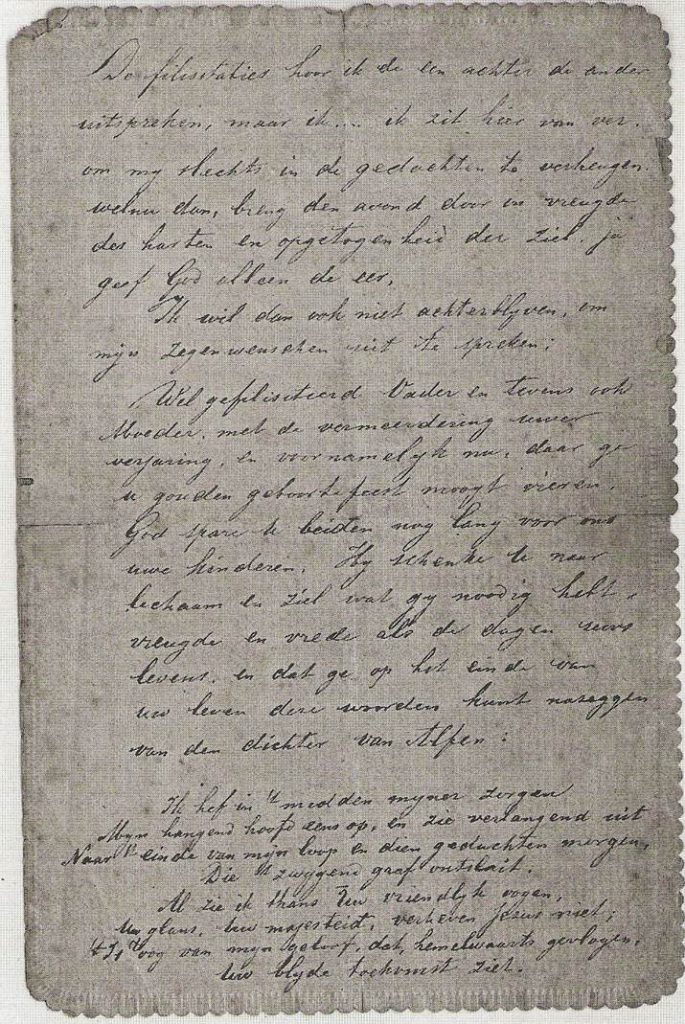 De filisitaties hoor ik de een achter de ander
uitspreken, maar ik.... ik zit hier van ver.
om my slechts in de gedachten te verheugen.
welnu dan, breng den avond door in vreugde
des harten en opgetogenheid der ziel. ja
geef God alleen de eer.
Ik wil dan ook niet achterblyven, om
mijn zegenwenschen uit te spreken:
Wel gefilisiteerd Vader en tevens ook
Moeder. met de vermeerdering uwer
verjaring, en voornamelyk nu, daar ge
u gouden geboortefeest moogt vieren.
God spare U beiden nog lang voor ons
uwe kinderen. Hy schenke U naar
lichaam en ziel wat gy noodig hebt,
vreugde en vrede als de dagen uws
levens. en dat ge op het einde van
uw leven deze woorden kunt nazeggen
van den dichter van Alfen:
Ik hef in 't midden myner zorgen
Myn hangend hoofd eens op, en zie verlangend uit
Naar 't einde van mijn loop en dien geduchten morgen,
Die 't zwijgend graf ontsluit.
Al zie ik thans Uw vriendlyk oogen,
Uw glans, Uw majesteit, verheven Jesus niet;
't Is 't oog van myn geloof, dat, hemelwaarts gevlogen,
Uw blyde toekomst ziet.